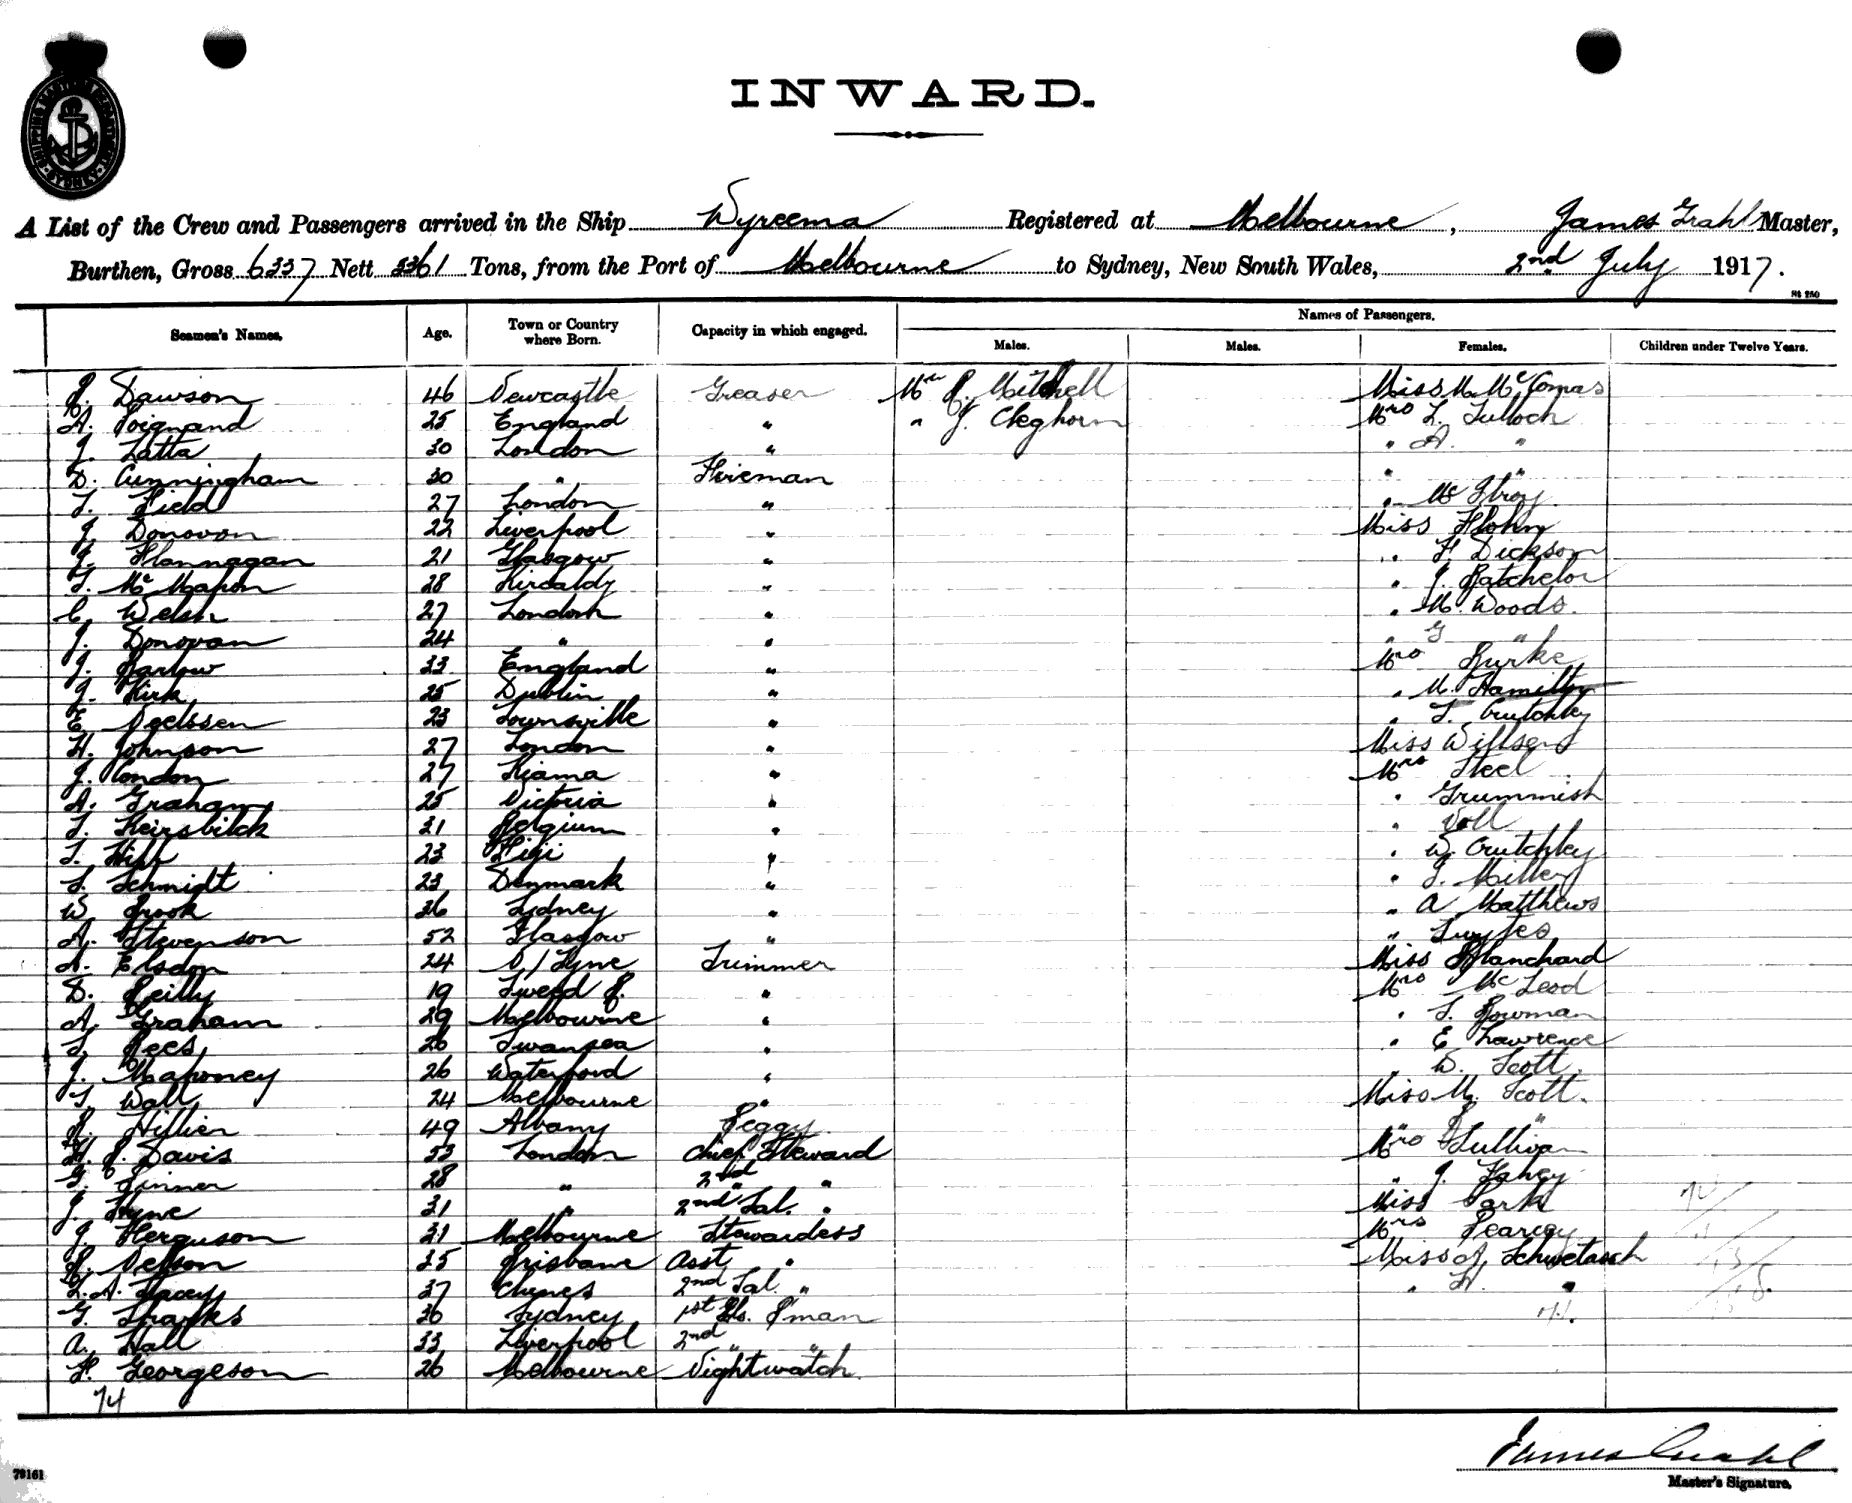 SHIPPING MASTERS DEPARTMENT SYDNEY
INWARD.
A List of the Crew and Passengers arrived in the Ship Wyreema Registered at Melbourne, James Grahl Master,
Burthen, Gross 6337 Nett 3361 Tons, from the Port of Melbourne to Sydney, New South Wales, 2nd July 1917.
St 250
Seamen's Names. Age. Town or Country where Born. Capacity in which engaged. Names of Passengers.
Males. Males. Females. Children under Twelve Years.
Dawson 46 Newcastle Greaser Mr R. Mitchell Miss M. McComas
A. Poignand 25 England " " J. Cleghorn Mrs L. Tulloch
J. Latta 30 London " " A. "
D. Cunningham 30 " Fireman " "
T. Field 27 London " "
J. Donovan 22 Liverpool " Miss
J. Flannagan 21 Glasgow " " F. Dickson
T. McMahon 28 Kircaldy " " J. Batchelor
C. Welsh 27 London " " M. Woods.
J. Donovan 24 " " " G "
J. Barlow 33 England " Mrs Burke
J. Kirk 25 Dublin " " M. Hamilton
E. Neilssen 23 Townsville " " T. Crutchley
H. Johnson 27 London " Miss Willsen
J. Condon 27 Kiama " Mrs Steel
A. Graham 25 Victoria " " Grummish
T. Keirsbilck 31 Belgium " " Voll
T. Hill 23 Fiji " " W. Crutchley
S. Schmidt 23 Denmark " " Miller
W. Brook 36 Sydney " " A Matthews
A. Stevenson 52 Glasgow " "
A. Elsdon 24 N/Tyne Trimmer Miss Blanchard
D. Reilly 19 Tweed R. " Mrs McLeod
A. Graham 29 Melbourne " " S. Bowman
Rees 26 Swansea " " E Lawrence
J. Mahoney 26 Waterford " " W. Scott.
T. Wall 24 Melbourne " Miss M. Scott.
R. Hillier 49 Albany Peggy "
H. R. Davis 53 London Chief Steward Mrs Sullivan
Pinner 28 " 2nd " " J. Fahey
J. Hyne 31 " 2nd Sal. " Miss Park
J. Ferguson 31 Melbourne Stewardess Mrs Pearcey
R. Nelson 35 Brisbane Asst " Miss A. Schwetasch
A. Stacey 37 2nd Sal. " " H. "
G. Sharks 30 Sydney 1st Sls. P'man
A. Hall 33 Liverpool 2nd " "
F. Georgeson 26 Melbourne Nightwatch
74
James Grahl
Master's Signature.
79161